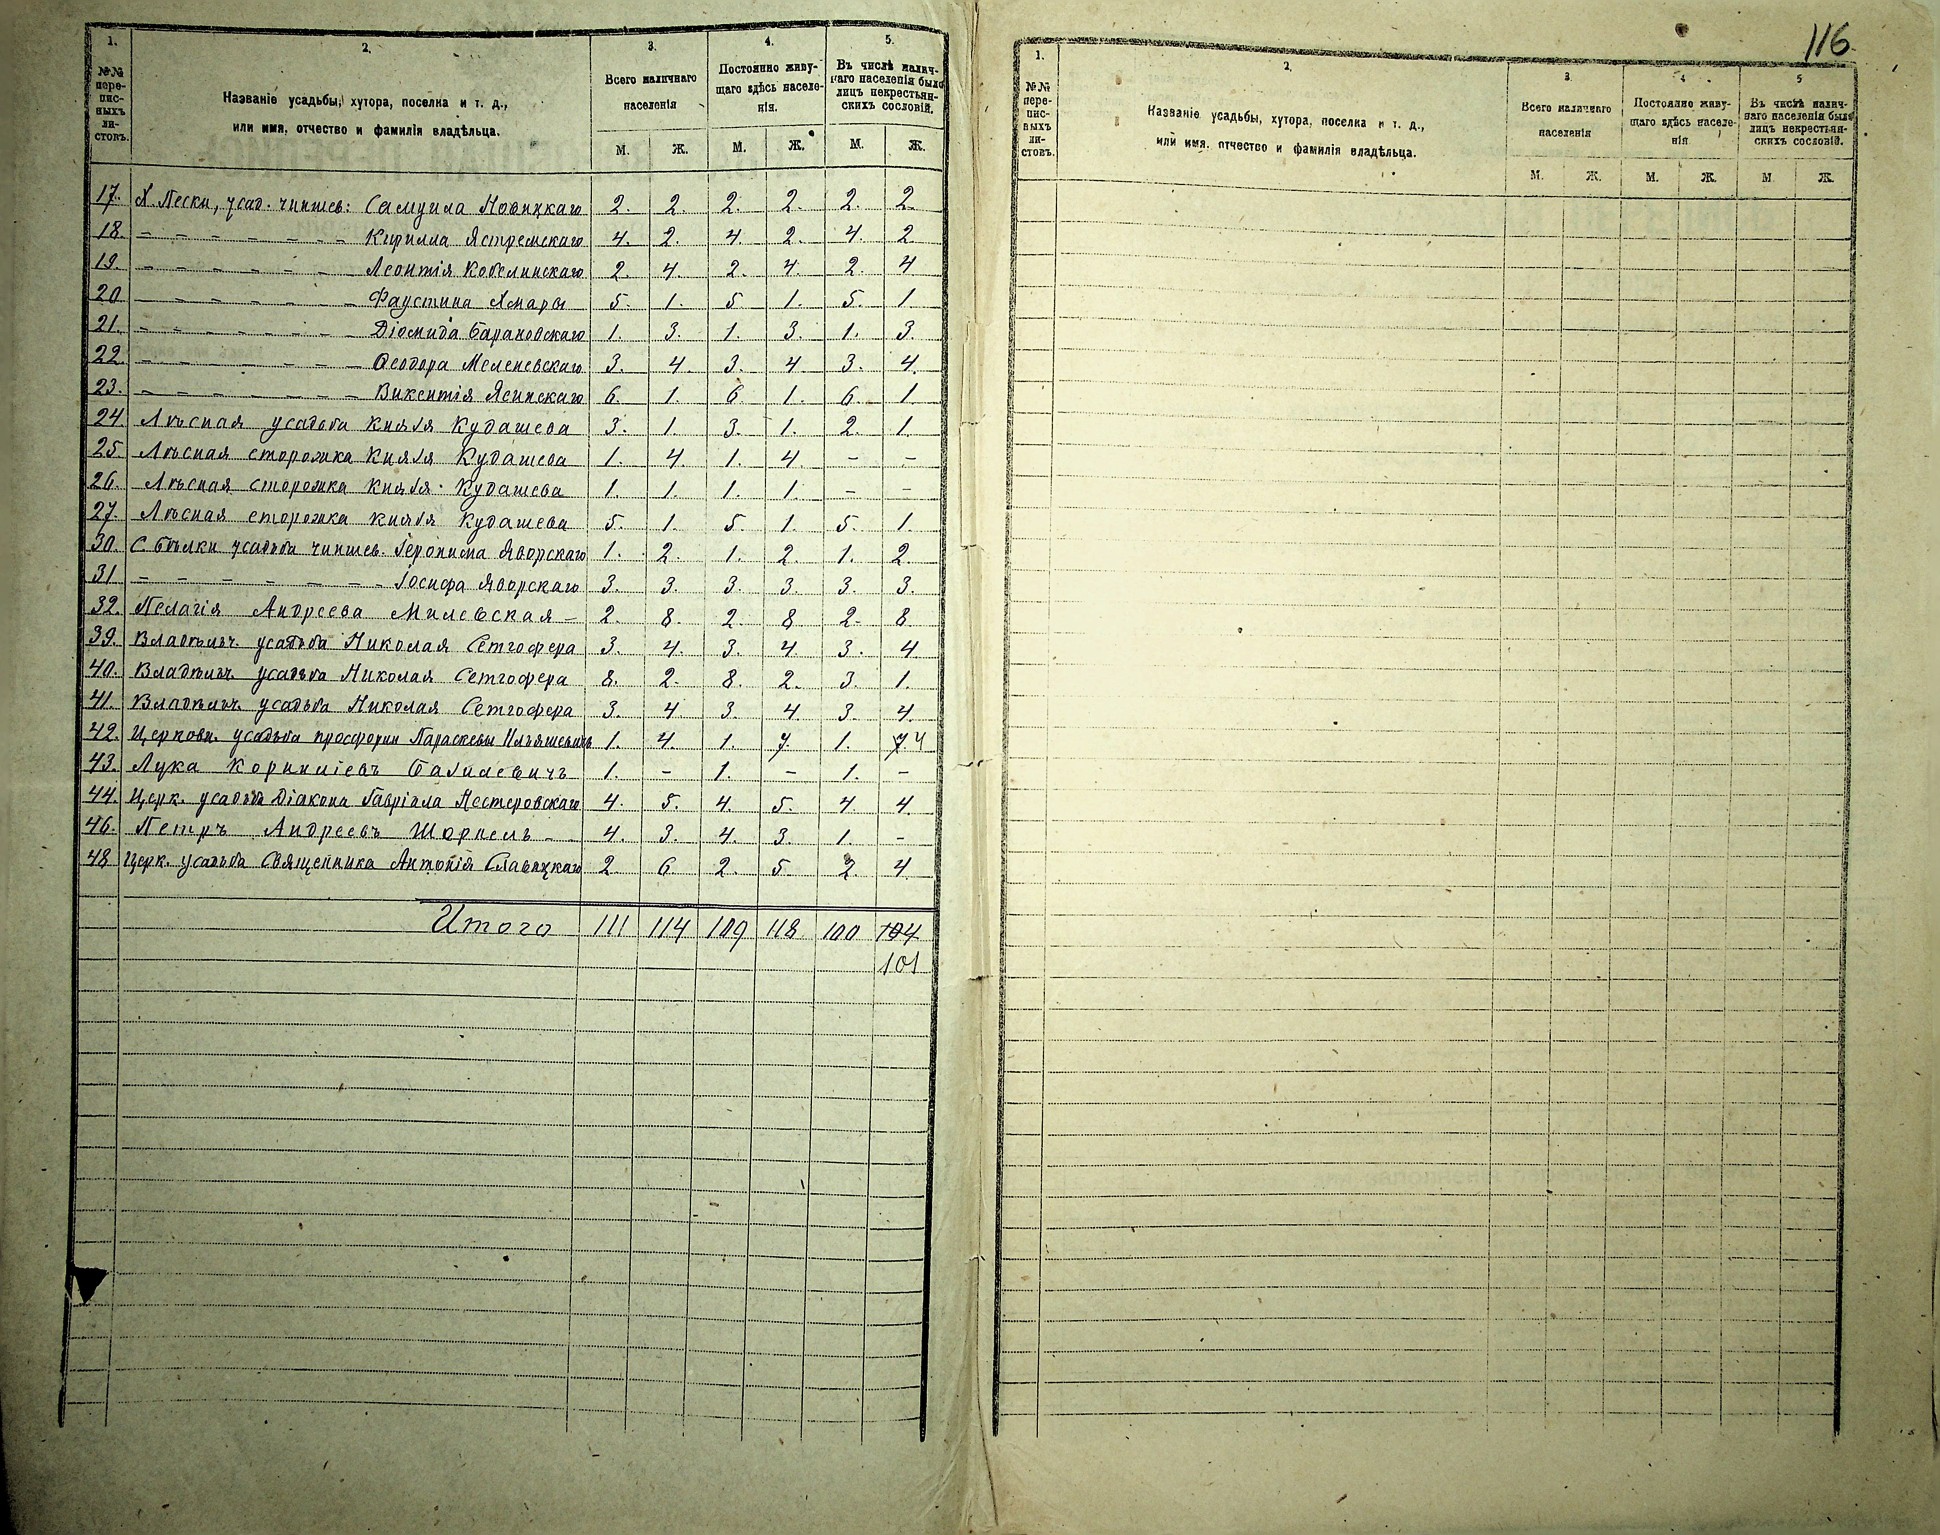 1. 2. 3. 4. 5.
№№ пере-пис-ныхъ ли-стовъ. Названіе усадьбы, хутора, поселка и т. д., или имя, отчество и фамилія владѣльца. Всего наличнаго населенія Постоянно живу-щаго здѣсь населе-нія. Въ числѣ налич-наго населенія было лицъ некрестьян-скихъ сословій.
М. Ж. М. Ж. М. Ж.
17. Х. Пески, усад. чиншев: Самуила Новицкаго 2. 2. 2. 2. 2. 2
18. – – – – – – – Кирилла Ястремскаго 4. 2. 4. 2. 4. 2
19. – – – – – – – Леонтія Кобелинскаго 2. 4. 2. 4. 2. 4
20 – – – – – – – Фаустина Хмары 5. 1. 5 1. 5. 1.
21. – – – – – – – Діомида Барановскаго 1. 3. 1. 3. 1. 3.
22. – – – – – – – Ѳеодора Меленевскаго 3. 4. 3. 4 3. 4
23. – – – – – – – Викентія Ясинскаго 6. 1. 6. 1. 6. 1
24. Лѣсная усадьба Князя Кудашева 3. 1. 3. 1. 2. 1.
25. Лѣсная сторожка Князя Кудашева 1. 4. 1. 4. – –
26. Лѣсная сторожка Князя Кудашева 1. 1. 1. 1. – –
27. Лѣсная сторожка Князя Кудашева 5. 1. 5 1. 5. 1.
30. С. Бѣлки усадьба чиншев. Іеронима Яворскаго 1. 2. 1. 2 1. 2
31 – – – – – – – Іосифа Яворскаго 3. 3. 3. 3. 3. 3.
32. Пелагія Андреева Милевская – 2. 8. 2 8 2. 8.
39. Владѣльч. усадьба Николая Сетгофера 3. 4. 3. 4 3. 4
40. Владѣльч. усадьба Николая Сетгофера 8. 2. 8. 2. 3. 1.
41. Владѣльч. усадьба Николая Сетгофера 3. 4. 3. 4. 3. 4.
42. Церковн. усадьба просфорни Параскевы Ильяшевичъ 1. 4. 1. 7. 1. 7 4
43. Лука Корниліевъ Базилевичъ 1. – 1. – 1. –
44. Церк. усадьба Діакона Гавріила Нестеровскаго 4. 5. 4. 5. 4. 4.
46. Петръ Андреевъ Шюрпель – – 4. 3. 4. 3. 1. –
48 Церк. усадьба Священника Антонія Славицкаго 2 6. 2. 5 2. 4
Итого 111 114 109 118 100 104
101
116.
1. 2. 3 4 5
№№ пере-пис-ныхъ ли-стовъ. Названіе усадьбы, хутора, поселка и т. д., или имя, отчество и фамилія владѣльца. Всего наличнаго населенія Постоянно живу-щаго здѣсь населе-нія Въ числѣ налич-наго населенія было лицъ некрестьян-скихъ сословій.
М. Ж. М. Ж. М Ж.